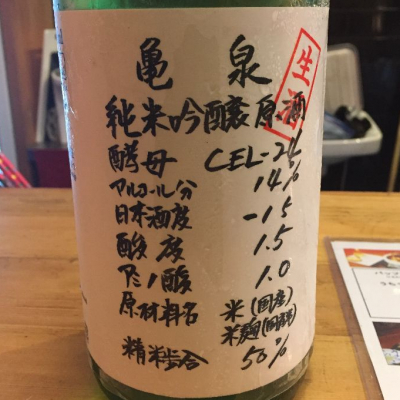 亀泉
生酒
純米吟醸原酒
酵母 CEL-24
アルコール分 14%
日本酒度 -15
酸度 1.5
アミノ酸 1.0
原材料名 米(国産)
米麹(国産米)
精米歩合 50%